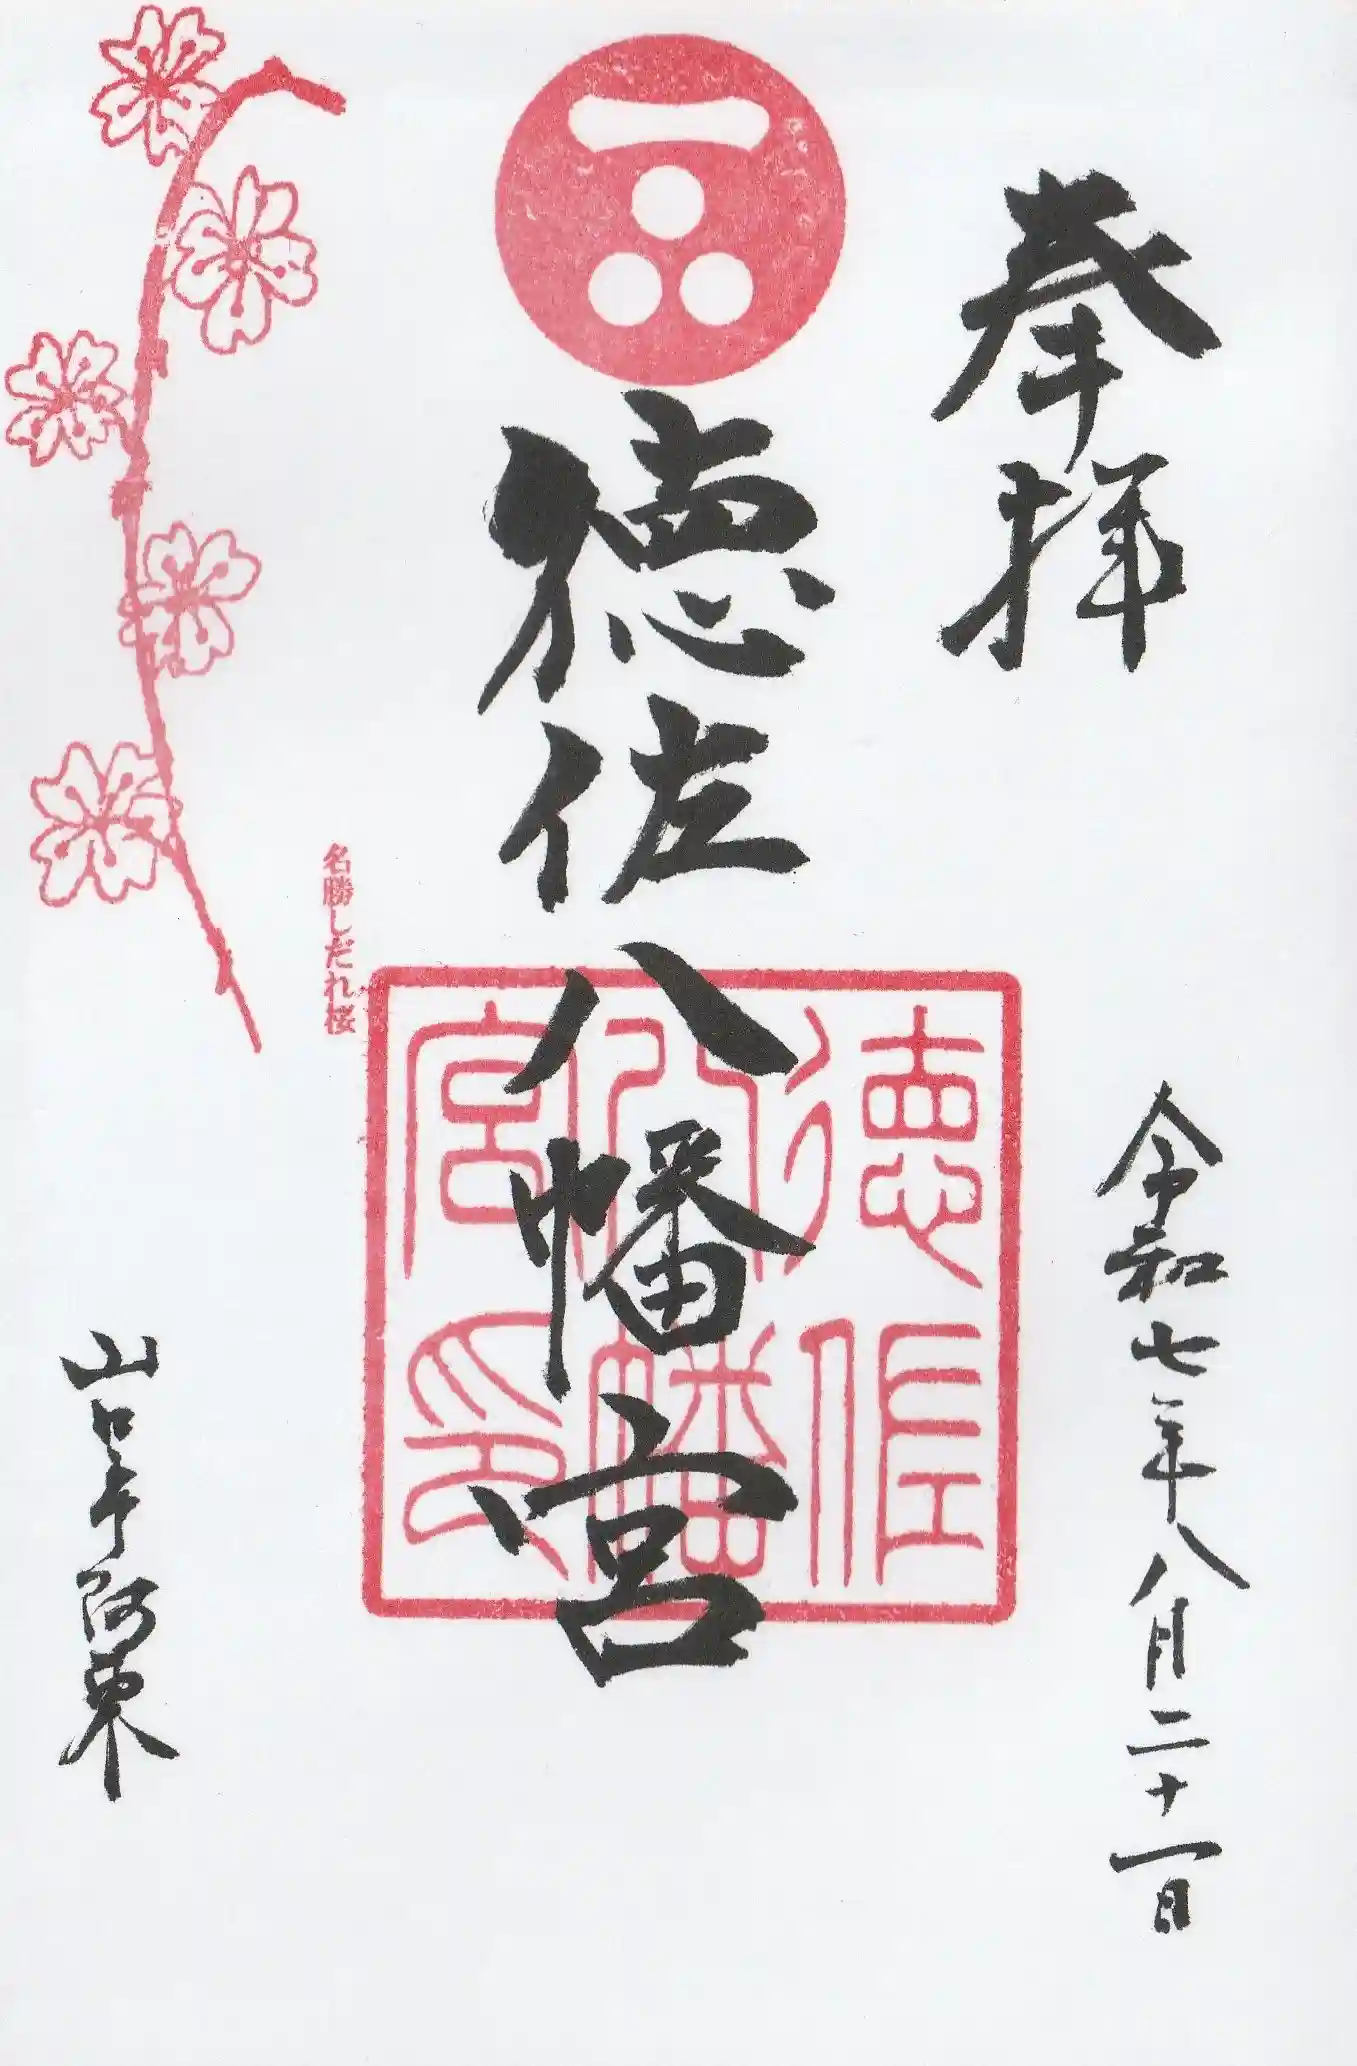 奉拝
令和七年八月二十一日
徳佐八幡宮
徳佐
八幡
宮印
名勝しだれ桜
山口市阿東